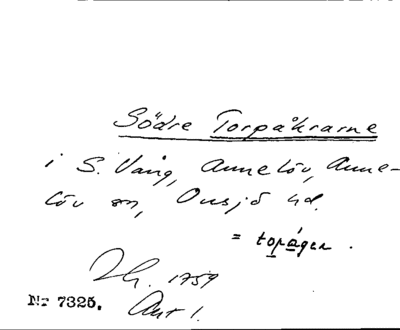 Södre Torpåkrarne
i S. Vång, Annelöv, Anne-
löv sn, Onsjö hd.
= topágær.
1759
Nr 7325. Akt 1.